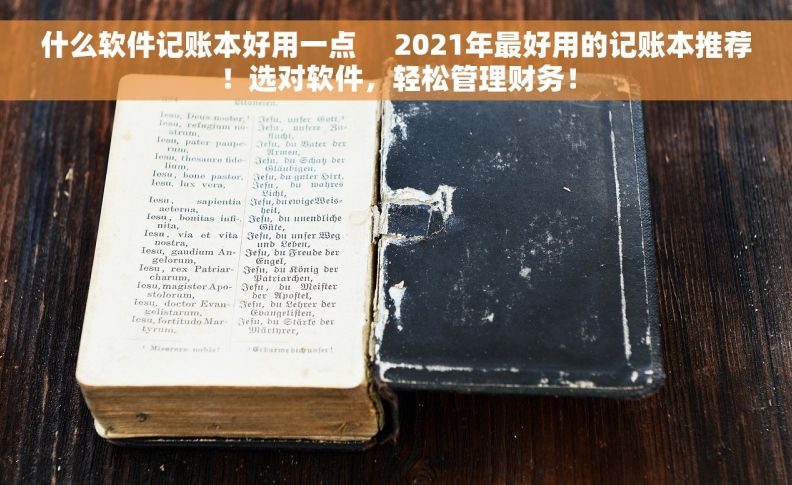 什么软件记账本好用一点　2021年最好用的记账本推荐
！选对软件，轻松管理财务！
Litaneien.
Iesu, Deus noster,¹
Iesu, refugium no-
strum,
Iesu, pater paupe-
rum,
Iesu, thesaure fide-
lium,
Iesu, bone pastor,
Iesu, lux vera,
Iesu, sapientia
aeterna,
Iesu, bonitas infi-
nita,
Iesu, via et vita
nostra,
Iesu, gaudium An-
gelorum,
Iesu, rex Patriar-
charum,
Iesu, magister Apo-
stolorum,
Iesu, doctor Evan-
gelistarum,
Iesu, fortitudo Mar-
tyrum,
¹ Miserere nobis!
Jesu, unser Gott,¹
Jesu, unsere Zu-
flucht,
Jesu, du Vater der
Armen,
Jesu, du Schatz der
Gläubigen,
Jesu, du guter Hirt,
Jesu, du wahres
Licht,
Jesu, du ewige Weis-
heit,
Jesu, du unendliche
Güte,
Jesu, du unser Weg
und Leben,
Jesu, du Freude der
Engel,
Jesu, du König der
Patriarchen,
Jesu, du Meister
der Apostel,
Jesu, du Lehrer der
Evangelisten,
Jesu, du Stärke der
Märtyrer,
¹ Erbarme dich unser!